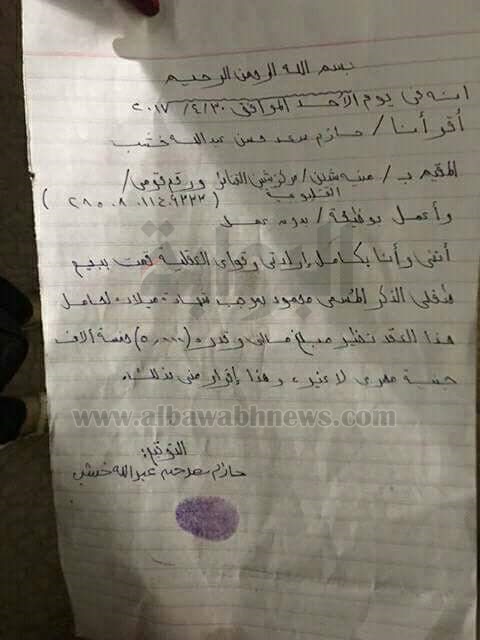 بسم الله الرحمن الرحيم
انه فى يوم الأحد الموافق ٢٠١٧/٤/٣٠
أقر أنا / حازم سعد حسن عبدالله خشب
المقيم ب / منية شبين / مركز شبين القناطر ورقم قومى /
القليوبية
وأعمل بوظيفة / بدون عمل
أننى وأنا بكامل إرادتى وقواى العقلية قمت ببيع
طفلى الذكر المسمى محمود بموجب شهادة ميلاد لحامل
هذا العقد نظير مبلغ مالى وقدره (٥٠٠٠) خمسة آلاف
جنية مصرى لا غير، وهذا إقرار منى بذلك.
البوابة
www.albawabhnews.com
التوقيع:
حازم سعد حسن عبدالله خشب